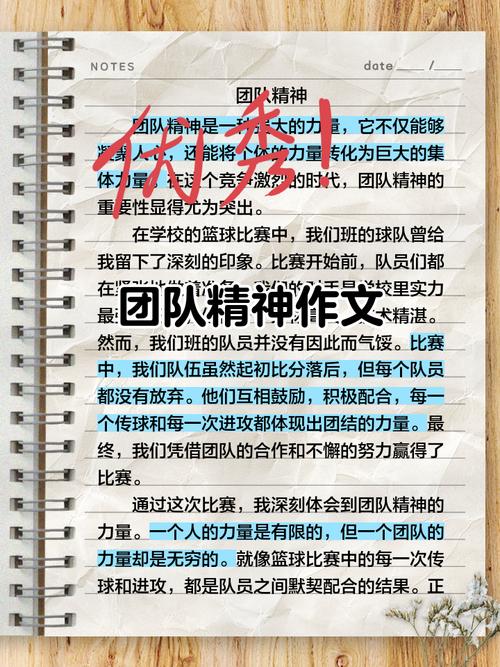 NOTES
date ____ / ____
团队精神
团队精神是一种强大的力量，它不仅能够
凝聚人心，还能将个体的力量转化为巨大的集
体力量。在这个竞争激烈的时代，团队精神的
重要性显得尤为突出。
优秀！
在学校的篮球比赛中，我们班的球队曾给
我留下了深刻的印象。比赛开始前，队员们都
在
学校里实力
团队精神作文
最
术精湛。
然而，我们班的队员并没有因此而气馁。比赛
中，我们队伍虽然起初比分落后，但每个队员
都没有放弃。他们互相鼓励，积极配合，每一
个传球和每一次进攻都体现出团结的力量。最
终，我们凭借团队的合作和不懈的努力赢得了
比赛。
通过这次比赛，我深刻体会到团队精神的
力量。一个人的力量是有限的，但一个团队的
力量却是无穷的。就像篮球比赛中的每一次传
球和进攻，都是队员之间默契配合的结果。正